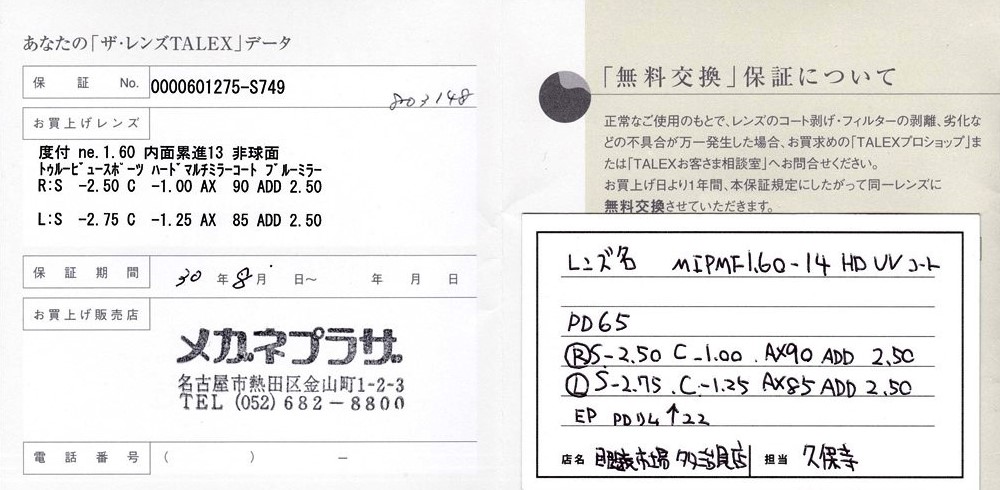 あなたの「ザ・レンズTALEX」データ
保証 No. 0000601275-S749
803148
お買上げレンズ
度付 ne.1.60 内面累進13 非球面
ﾄｩﾙｰﾋﾞｭｰｽﾎﾟｰﾂ ﾊｰﾄﾞﾏﾙﾁﾐﾗｰｺｰﾄ ﾌﾞﾙｰﾐﾗｰ
R:S -2.50 C -1.00 AX 90 ADD 2.50
L:S -2.75 C -1.25 AX 85 ADD 2.50
保証期間 30年8月 日〜 年 月 日
お買上げ販売店
メガネプラザ
名古屋市熱田区金山町1-2-3
TEL (052) 682-8800
電話番号 ( ) －
「無料交換」保証について
正常なご使用のもとで、レンズのコート剥げ・フィルターの剥離、劣化な
どの不具合が万一発生した場合、お買求めの「TALEXプロショップ」ま
たは「TALEXお客さま相談室」へお問合せください。
お買上げ日より1年間、本保証規定にしたがって同一レンズに
無料交換させていただきます。
レンズ名 MIPMF1.60-14 HD UVコート
PD65
Ⓡ S-2.50 C-1.00 AX90 ADD 2.50
Ⓛ S-2.75 C-1.25 AX85 ADD 2.50
EP PDリム↑22
店名 眼鏡市場 担当 久保寺